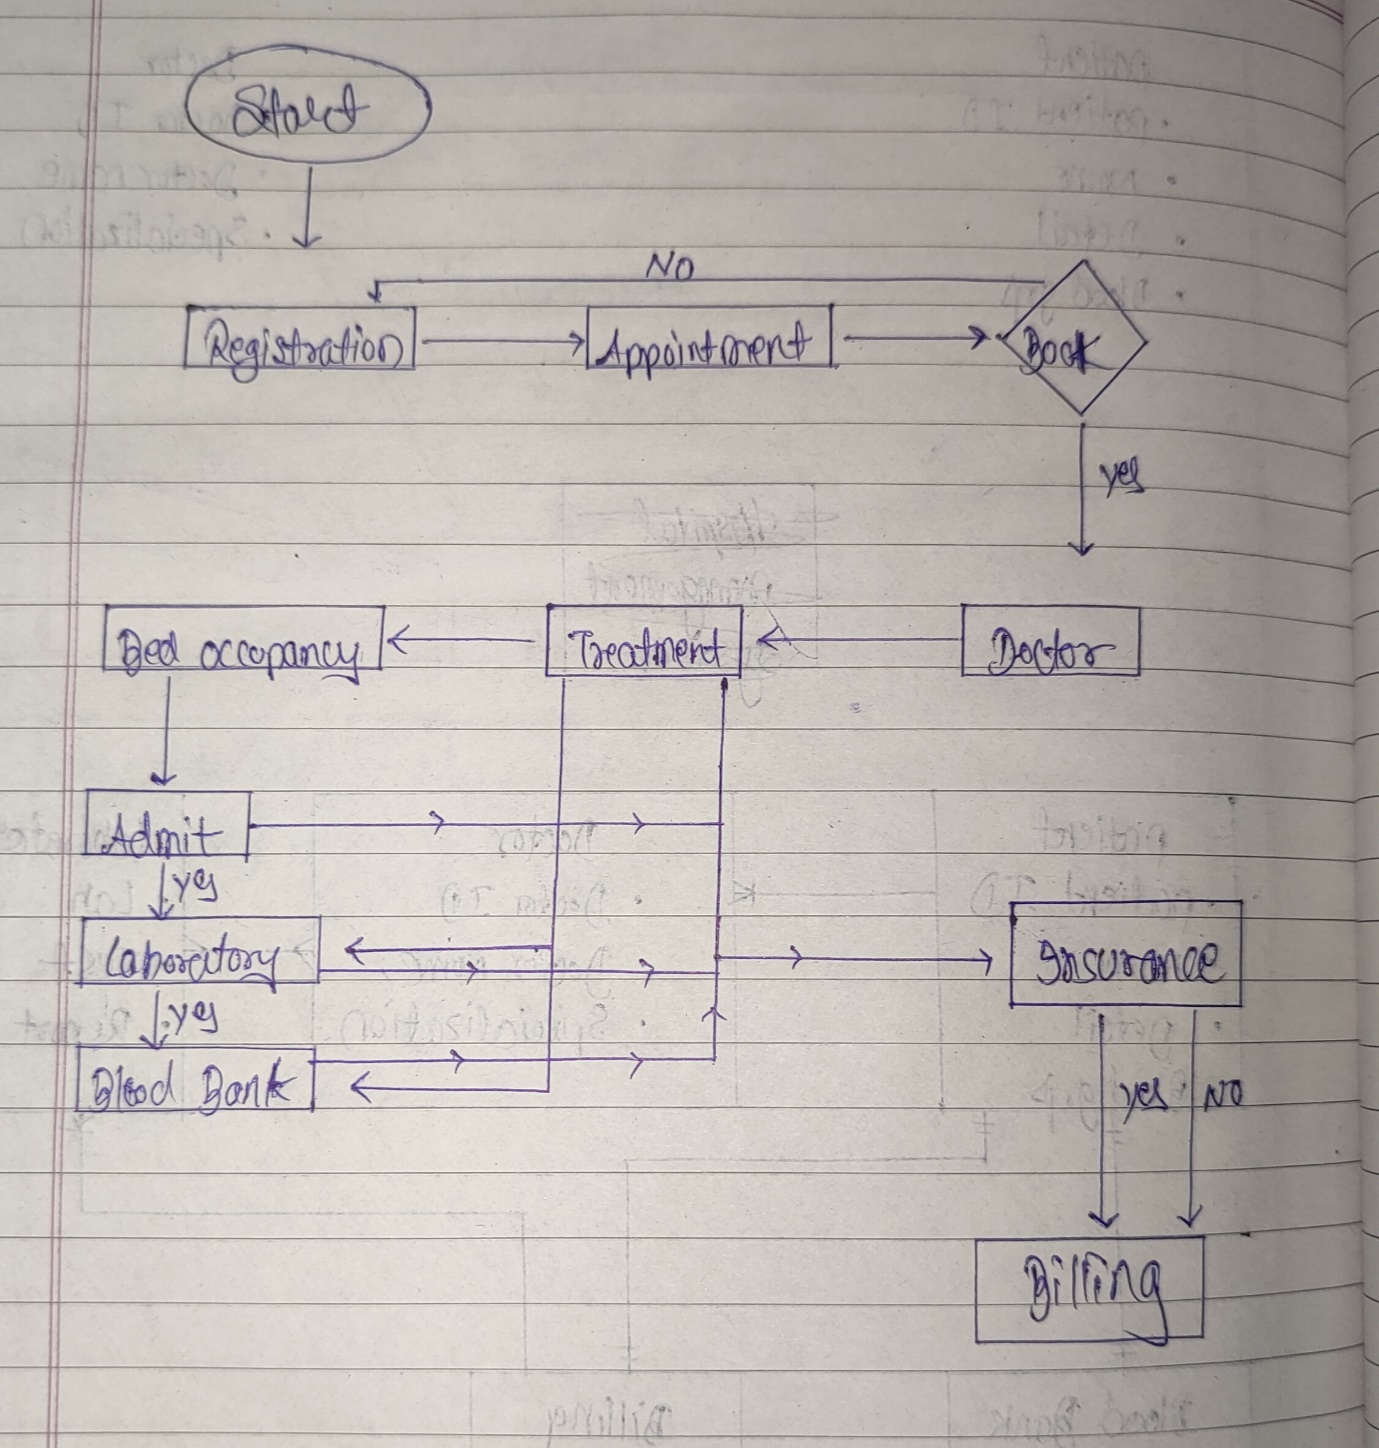 Start
NO
Registration
Appointment
Book
yes
Bed occupancy
Treatment
Doctor
Admit
yes
Laboratory
Insurance
yes
Blood Bank
yes
NO
Billing